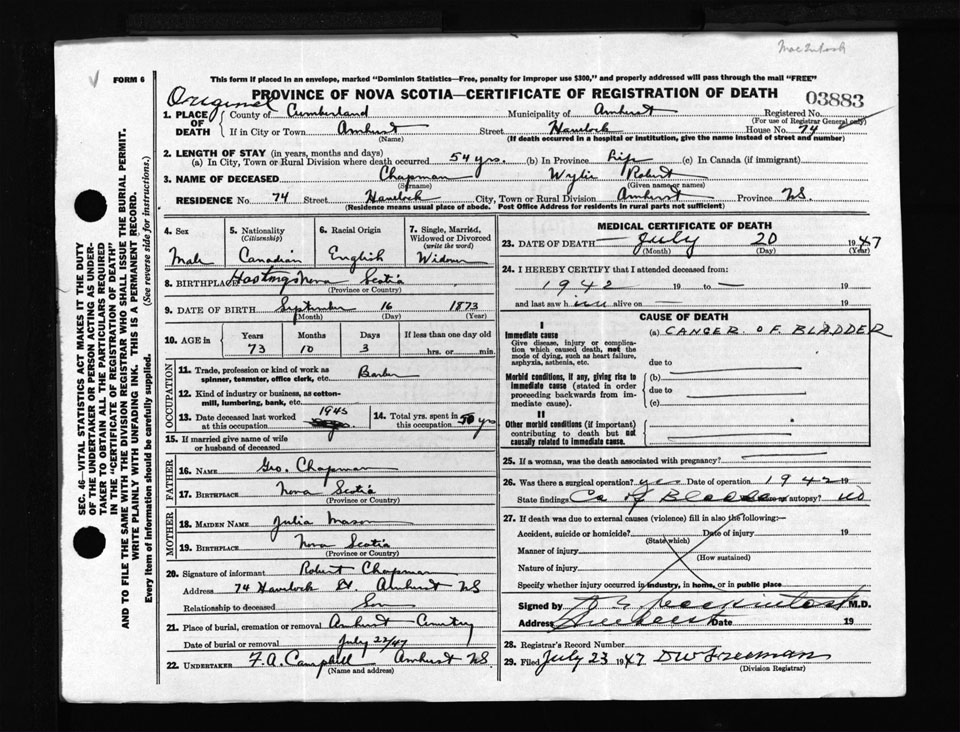 MacIntosh
V
FORM 6
This form if placed in an envelope, marked "Dominion Statistics—Free, penalty for improper use $300," and properly addressed will pass through the mail "FREE"
PROVINCE OF NOVA SCOTIA—CERTIFICATE OF REGISTRATION OF DEATH
Original
03883
1. PLACE OF DEATH
County of Cumberland Municipality of Amherst Registered No.
(For use of Registrar General only)
If in City or Town Amherst Street Havelock House No. 74
(Name) (If death occurred in a hospital or institution, give the name instead of street and number)
2. LENGTH OF STAY (in years, months and days)
(a) In City, Town or Rural Division where death occurred 54 yrs. (b) In Province Life (c) In Canada (if immigrant)
3. NAME OF DECEASED Chapman Wylie Robert
(Surname) (Given name or names)
RESIDENCE No. 74 Street Havelock City, Town or Rural Division Amherst Province N.S.
(Residence means usual place of abode. Post Office Address for residents in rural parts not sufficient)
4. Sex
Male
5. Nationality
(Citizenship)
Canadian
6. Racial Origin
English
7. Single, Married, Widowed or Divorced
(write the word)
Widower
8. BIRTHPLACE Hastings Nova Scotia
(Province or Country)
9. DATE OF BIRTH September 16 1873
(Month) (Day) (Year)
10. AGE in
Years Months Days If less than one day old
73 10 3 hrs. or min.
OCCUPATION
11. Trade, profession or kind of work as spinner, teamster, office clerk, etc. Barber
12. Kind of industry or business, as cotton-mill, lumbering, bank, etc.
13. Date deceased last worked at this occupation 1945
14. Total yrs. spent in this occupation 50 yrs
15. If married give name of wife or husband of deceased
FATHER
16. NAME Geo. Chapman
17. BIRTHPLACE Nova Scotia
(Province or Country)
MOTHER
18. MAIDEN NAME Julia Mason
19. BIRTHPLACE Nova Scotia
(Province or Country)
20. Signature of informant Robert Chapman
Address 74 Havelock St. Amherst NS
Relationship to deceased Son
21. Place of burial, cremation or removal Amherst Cemetery
Date of burial or removal July 22/47
22. UNDERTAKER F. A. Campbell Amherst N.S.
(Name and address)
MEDICAL CERTIFICATE OF DEATH
23. DATE OF DEATH July 20 1947
(Month) (Day) (Year)
24. I HEREBY CERTIFY that I attended deceased from:
1942 19 to — 19
and last saw him alive on — 19
CAUSE OF DEATH
I
Immediate cause
Give disease, injury or complication which caused death, not the mode of dying, such as heart failure, asphyxia, asthenia, etc.
(a) CANCER OF BLADDER
due to
Morbid conditions, if any, giving rise to immediate cause (stated in order proceeding backwards from immediate cause).
(b)
due to
(c)
II
Other morbid conditions (if important) contributing to death but not causally related to immediate cause.
25. If a woman, was the death associated with pregnancy?
26. Was there a surgical operation? yes Date of operation 1942 19
State findings Ca of Bladder Was there an autopsy? No
27. If death was due to external causes (violence) fill in also the following:—
Accident, suicide or homicide? Date of injury 19
(State which)
Manner of injury
(How sustained)
Nature of injury
Specify whether injury occurred in industry, in home, or in public place
Signed by Mackintosh M.D.
Address Amherst Date 19
28. Registrar's Record Number
29. Filed July 23 1947 D W Freeman
(Division Registrar)
SEC. 46—VITAL STATISTICS ACT MAKES IT THE DUTY
OF THE UNDERTAKER OR PERSON ACTING AS UNDER-
TAKER TO OBTAIN ALL THE PARTICULARS REQUIRED
IN THE "CERTIFICATE OF REGISTRATION OF DEATH"
AND TO FILE THE SAME WITH THE DIVISION REGISTRAR WHO SHALL ISSUE THE BURIAL PERMIT.
WRITE PLAINLY WITH UNFADING INK. THIS IS A PERMANENT RECORD.
Every item of information should be carefully supplied. (See reverse side for instructions.)